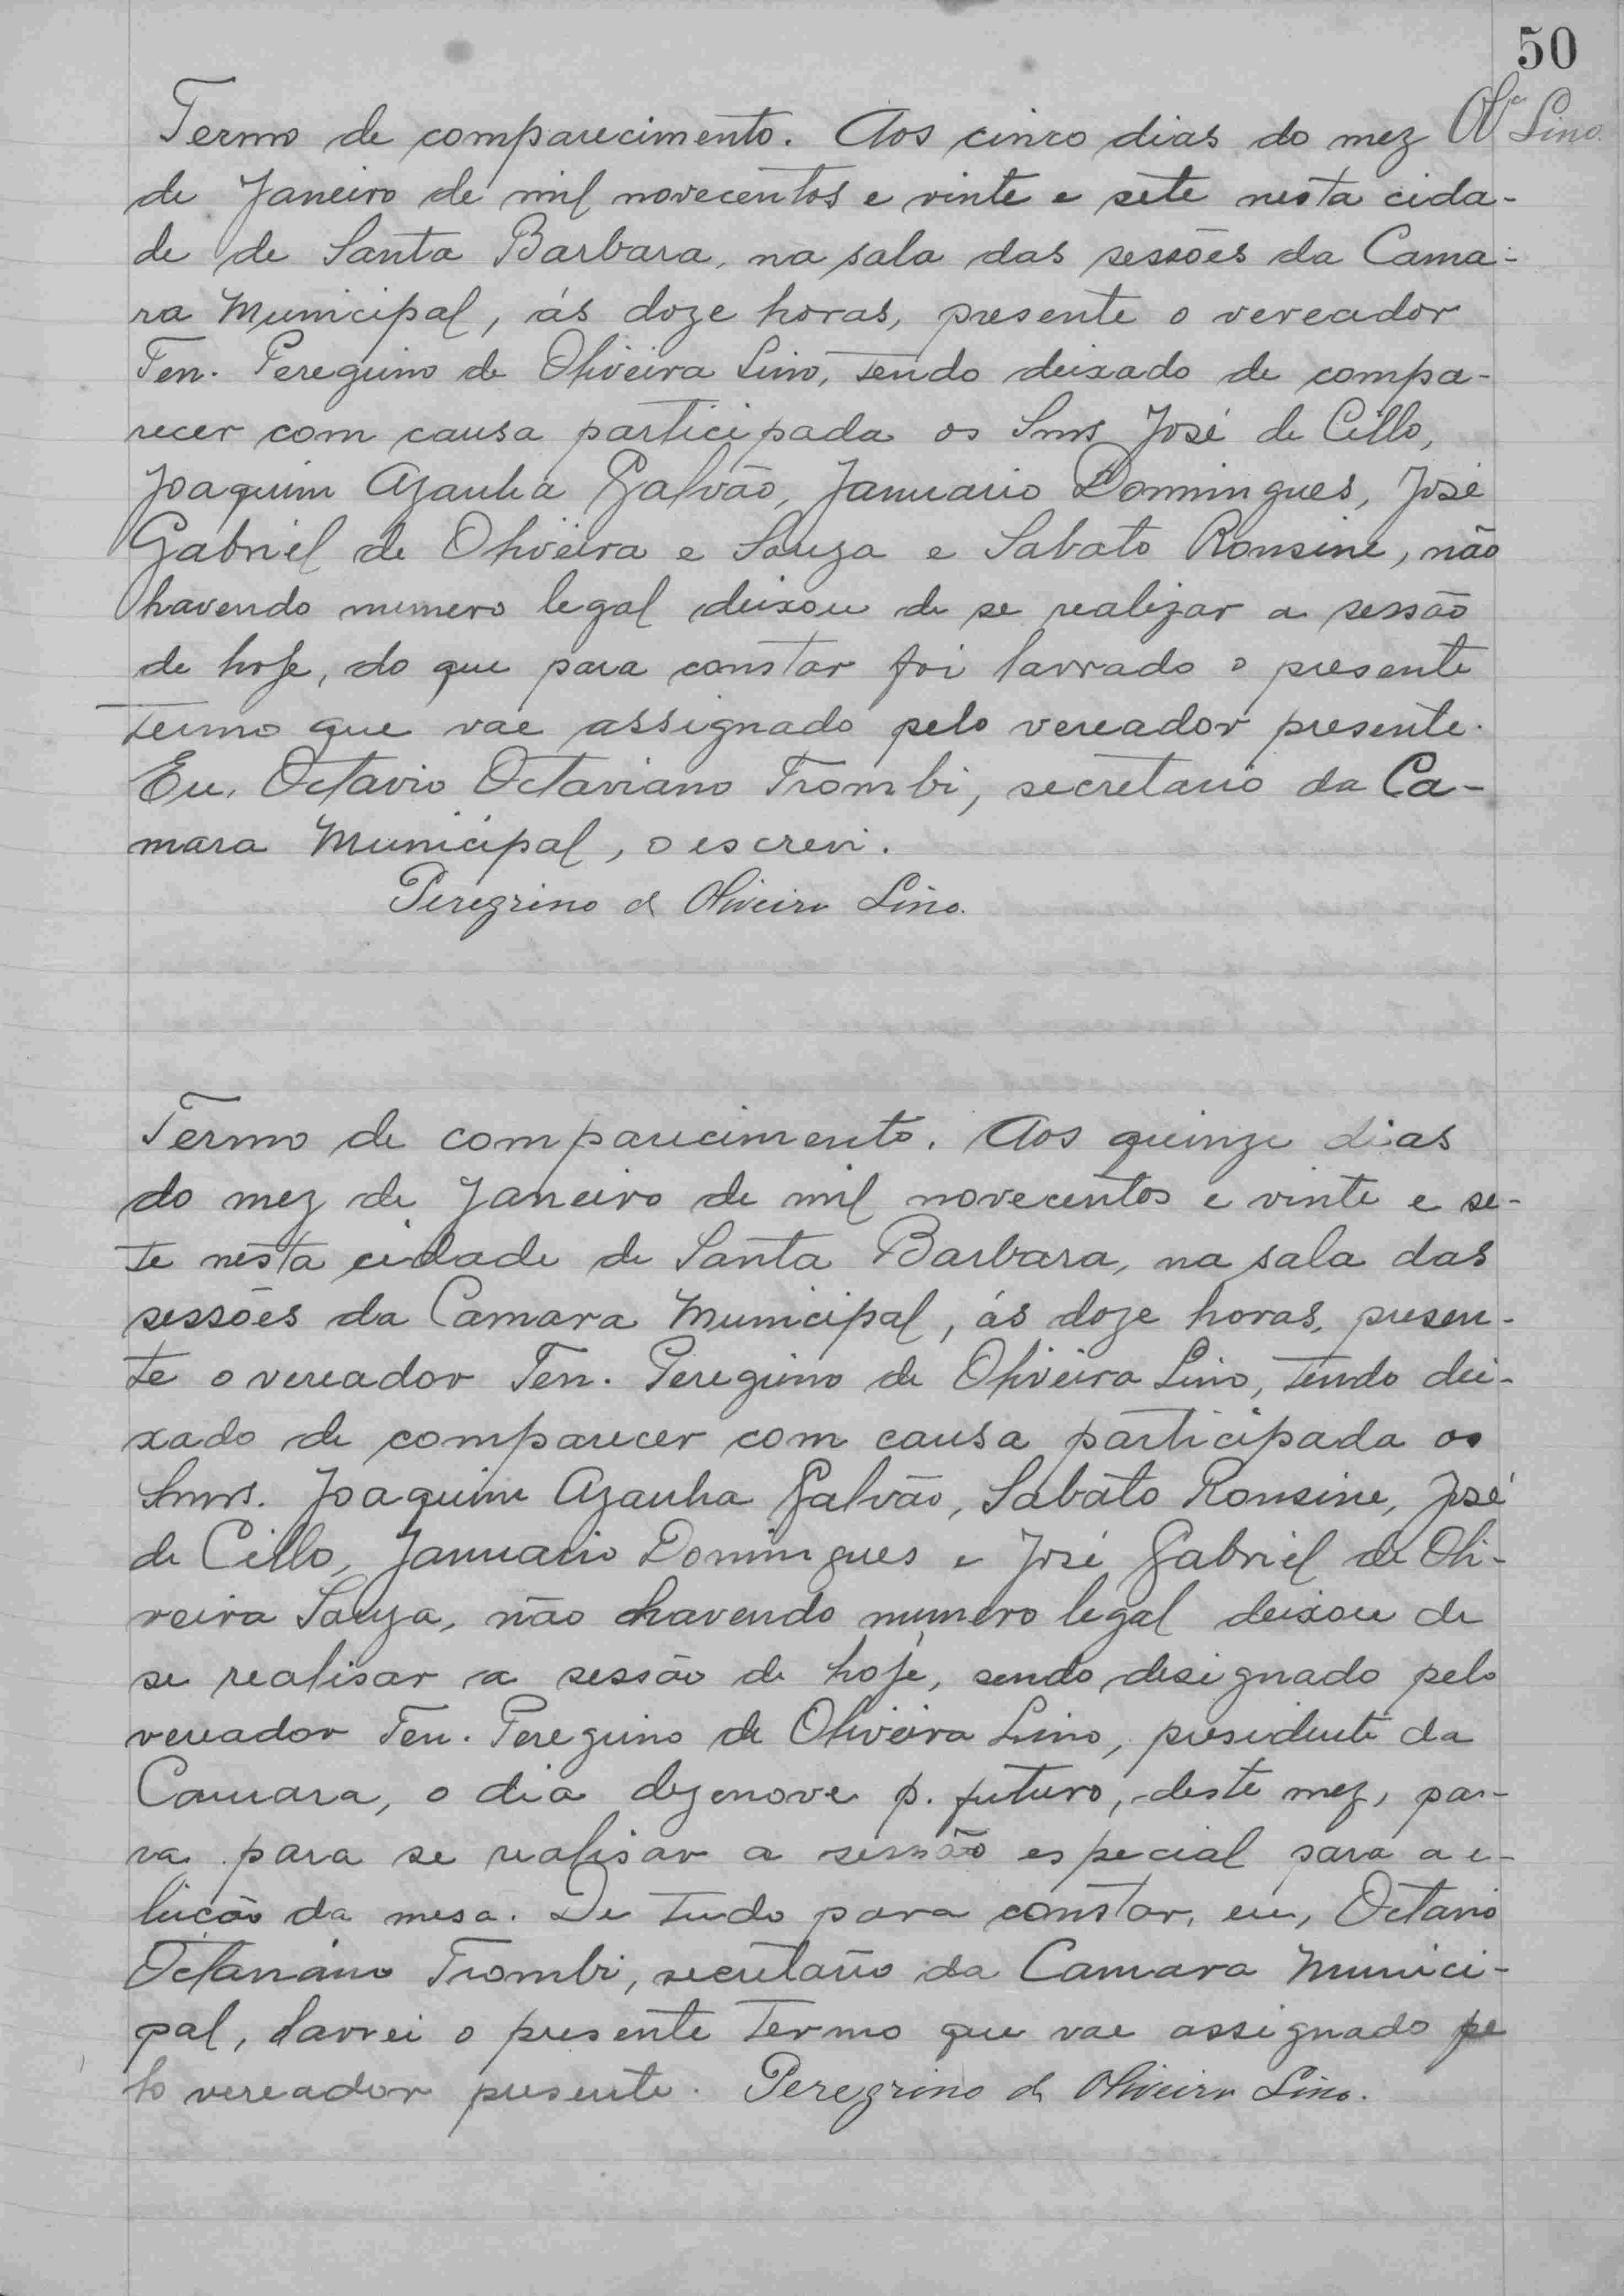 50
Lino.
Termo de comparecimento. Aos cinco dias do mez
de Janeiro de mil novecentos e vinte e sete nesta cida-
de de Santa Barbara, na sala das sessões da Cama-
ra Municipal, ás doze horas, presente o vereador
Ten. Peregrino de Oliveira Lino, tendo deixado de compa-
recer com causa participada os Snrs José de Cillo,
Joaquim Azanha Galvão, Januario Domingues, José
Gabriel de Oliveira e Souza e Sabato Ronsine, não
havendo numero legal deixou de se realizar a sessão
de hoje, do que para constar foi lavrado o presente
termo que vae assignado pelo vereador presente.
Eu, Octavio Octaviano Trombi, secretario da Ca-
mara Municipal, o escrevi.
Peregrino d Oliveira Lino.
Termo de comparecimento. Aos quinze dias
do mez de Janeiro de mil novecentos e vinte e se-
te nesta cidade de Santa Barbara, na sala das
sessões da Camara Municipal, ás doze horas, presen-
te o vereador Ten. Peregrino de Oliveira Lino, tendo dei-
xado de comparecer com causa participada os
Snrs. Joaquim Azanha Galvão, Sabato Ronsine, José
de Cillo, Januario Domingues e José Gabriel de Oli-
veira Souza, não havendo numero legal deixou de
se realisar a sessão de hoje, sendo designado pelo
vereador Ten. Peregrino de Oliveira Lino, presidente da
Camara, o dia dezenove p. futuro, deste mez, pa-
ra para se realisar a sessão especial para a e-
leicão da mesa. De tudo para constar, eu, Octavio
Octaviano Trombi, secretario da Camara Munici-
pal, lavrei o presente termo que vae assignado pe
lo vereador presente. Peregrino d Oliveira Lino.